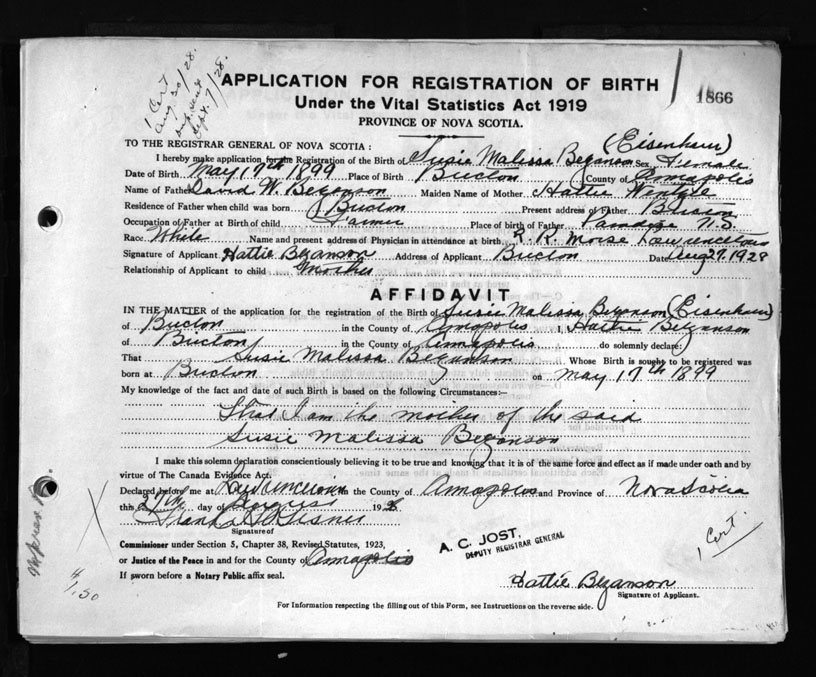 1 Cert
Aug 30/28.
Sept. 7/28.
APPLICATION FOR REGISTRATION OF BIRTH
1866
Under the Vital Statistics Act 1919
PROVINCE OF NOVA SCOTIA.
TO THE REGISTRAR GENERAL OF NOVA SCOTIA:
I hereby make application for the Registration of the Birth of Susie Malissa Bezanson (Eisenhaur) Sex Female
Date of Birth May 17th 1899 Place of Birth Bucton County of Annapolis
Name of Father David W. Bezanson Maiden Name of Mother Hattie
Residence of Father when child was born Bucton Present address of Father
Occupation of Father at Birth of child Farmer Place of birth of Father N.S.
Race White Name and present address of Physician in attendance at birth R. Morse Lawrencetown
Signature of Applicant Hattie Bezanson Address of Applicant Bucton Date Aug 27, 1928
Relationship of Applicant to child Mother
AFFIDAVIT
IN THE MATTER of the application for the registration of the Birth of Susie Malissa Bezanson (Eisenhaur)
of Bucton in the County of Annapolis I, Hattie Bezanson
of Bucton in the County of Annapolis do solemnly declare:
That Susie Malissa Bezanson Whose Birth is sought to be registered was
born at Bucton on May 17th 1899
My knowledge of the fact and date of such Birth is based on the following Circumstances:—
That I am the mother of the said
Susie Malissa Bezanson
I make this solemn declaration conscientiously believing it to be true and knowing that it is of the same force and effect as if made under oath and by
virtue of The Canada Evidence Act.
Declared before me at Lawrencetown in the County of Annapolis and Province of Nova Scotia
this 27th day of August 1928
Signature of
Commissioner under Section 5, Chapter 38, Revised Statutes, 1923,
or Justice of the Peace in and for the County of Annapolis
If sworn before a Notary Public affix seal.
A. C. JOST,
DEPUTY REGISTRAR GENERAL
1 Cert.
Hattie Bezanson
Signature of Applicant.
For Information respecting the filling out of this Form, see Instructions on the reverse side.